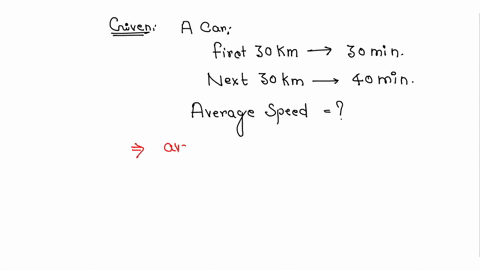 Given: A Car:
first 30 Km → 30 min.
Next 30 Km → 40 min.
Average Speed = ?
⇒ av